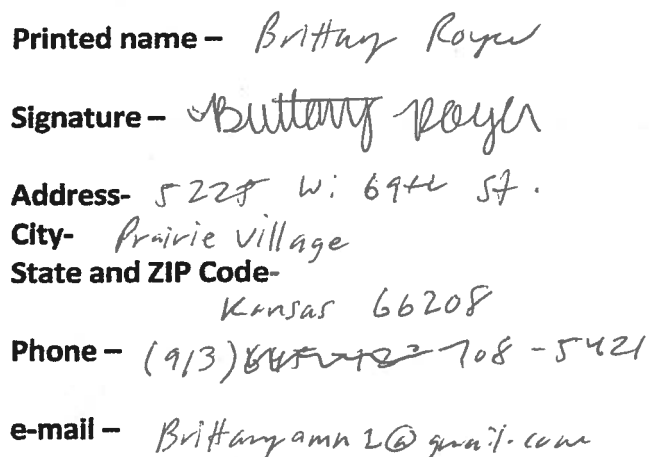 Printed name – Brittany Royer
Signature – Brittany Royer
Address- W. 69th St.
City- Prairie Village
State and ZIP Code-
Kansas 66208
Phone – (913) 708-5421
e-mail –